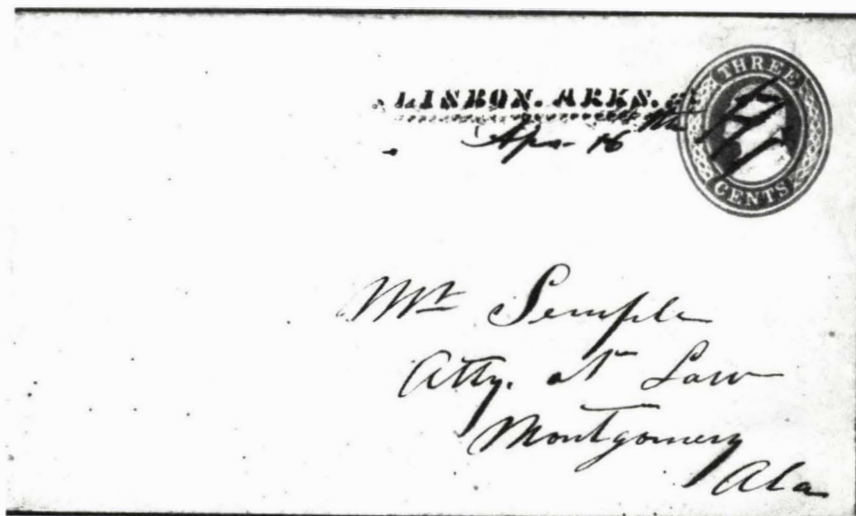 LISBON. ARKS.
Apr 16th
THREE
CENTS
Mr Semple
Atty. at Law
Montgomery
Ala